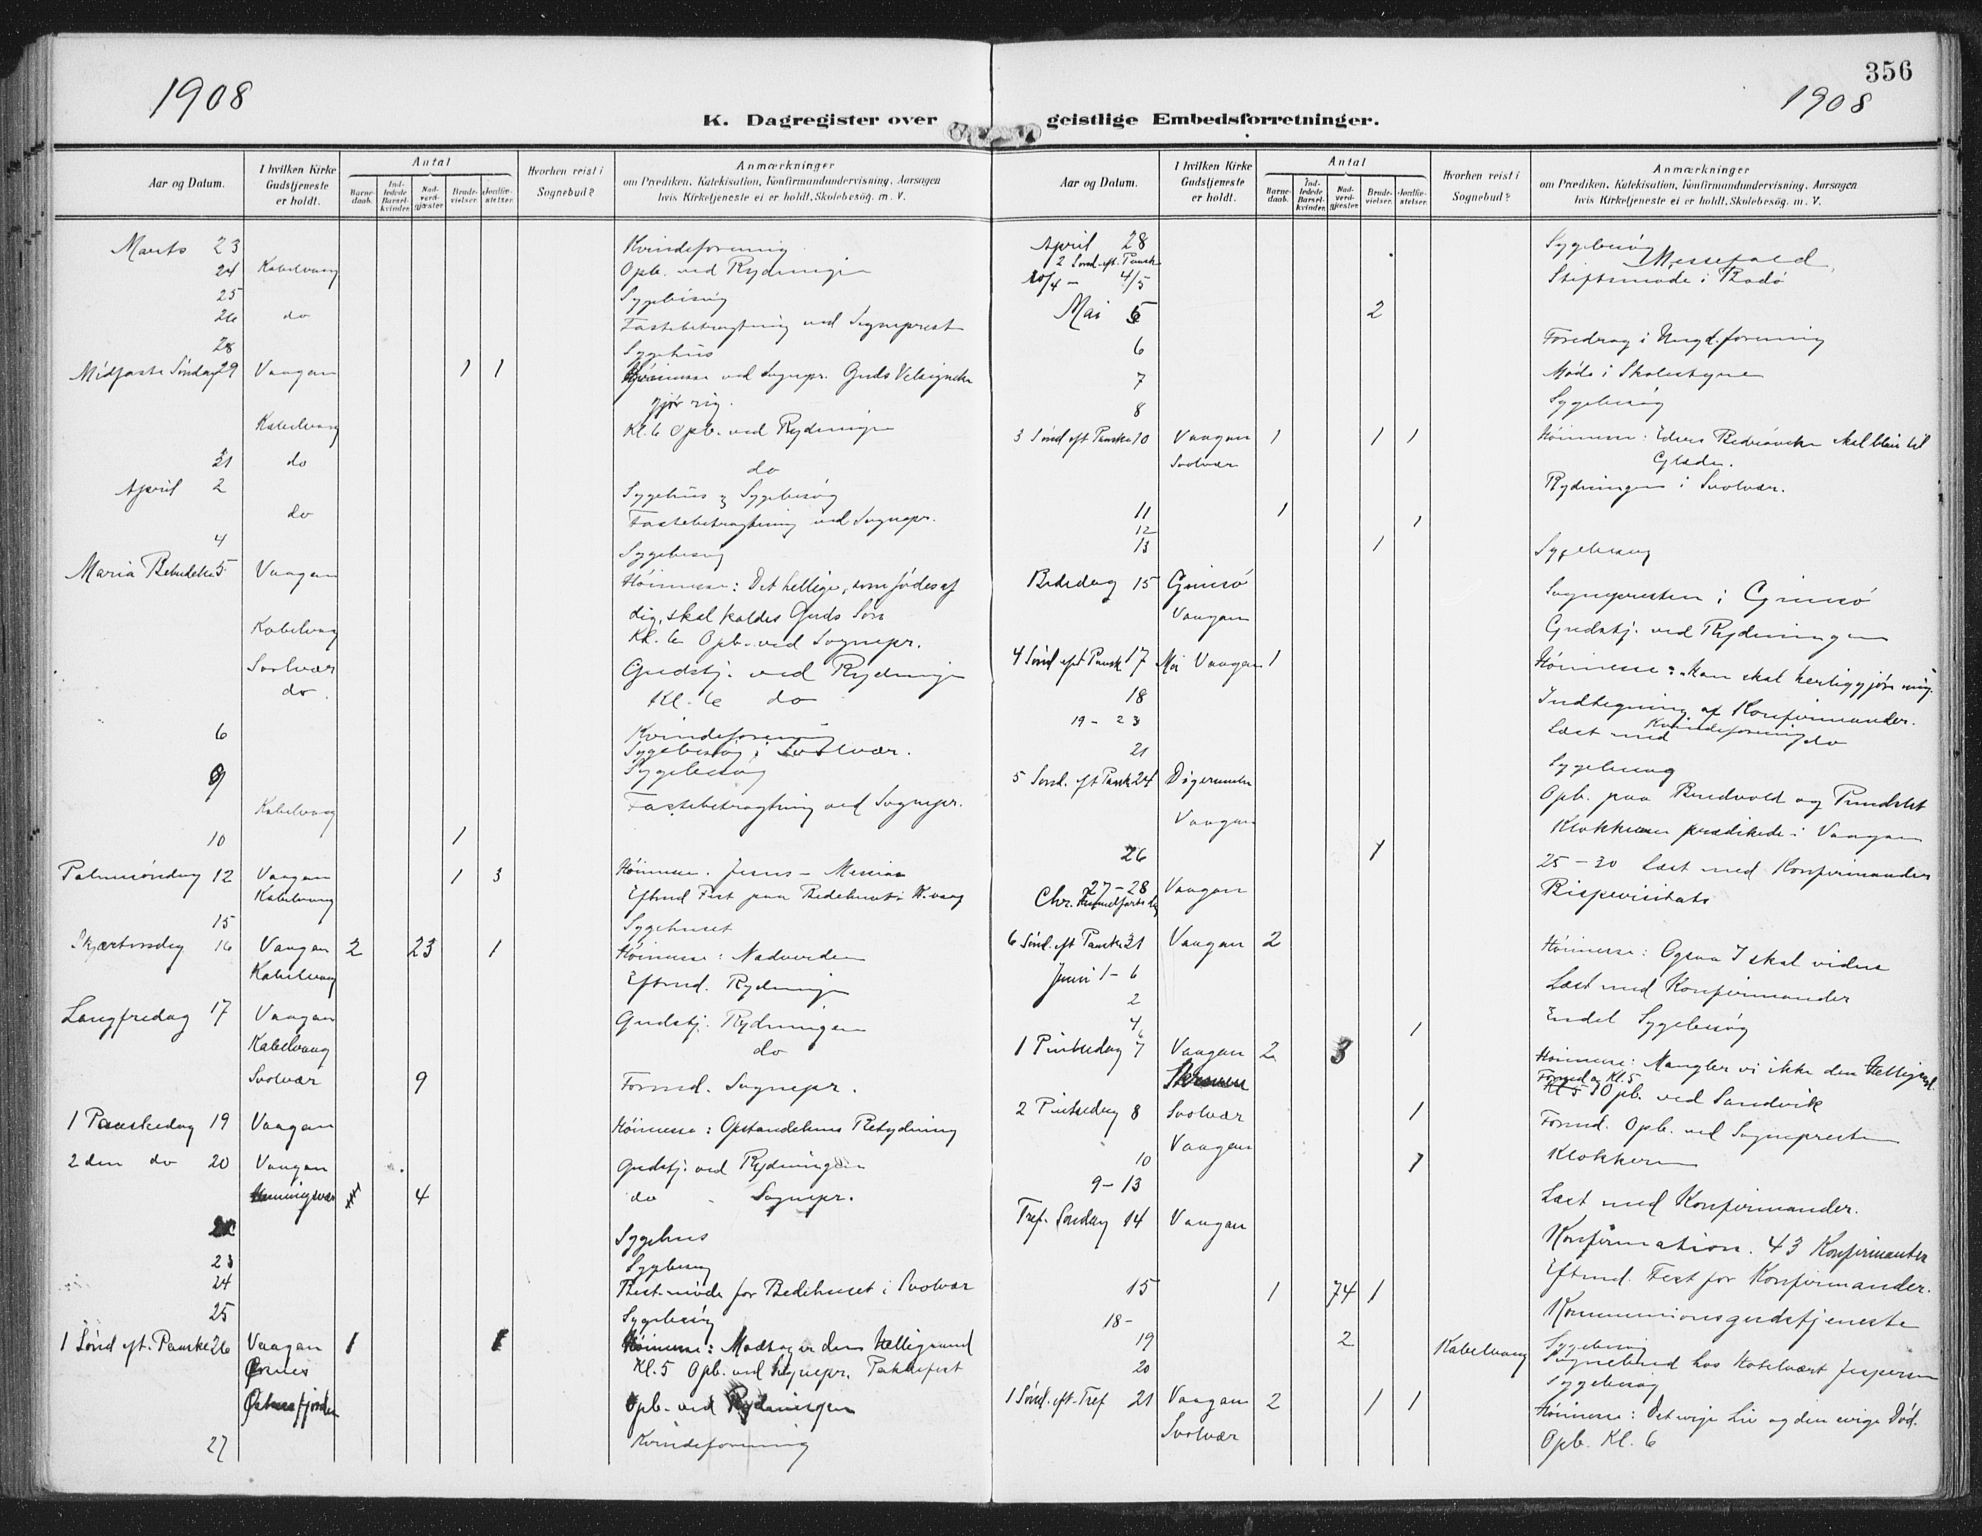 1908
K. Dagregister over
Aar og Datum.
I hvilken Kirke Gudstjeneste er holdt.
Antal
Barne-daab.
Ind-ledede Barsel-kvinder.
Nad-verd-gjæster.
Brude-vielser.
Jordfæ-stelser.
Hvorhen reist i Sognebud?
Anmærkninger
om Prædiken, Katekisation, Konfirmandundervisning, Aarsagen
hvis Kirketjeneste ei er holdt, Skolebesøg. m. V.
Marts 23 Kvindeforening
24 Kabelvaag Opb. ved Rydningen
25 Sygebesøg
26 do Fastebetragtning ved Sogneprest
28 Sygehus
Midfaste Søndag 29 Vaagan 1 1 Høimesse ved Sognepr. Guds Velsignelse
gjør rig.
Kabelvaag Kl. 6 Opb. ved Rydningen
31 do do
April 2 Sygehus & Sygebesøg
do Fastebetragtning ved Sognepr.
4 Sygebesøg
Maria Bebudelse 5 Vaagan Høimesse: Det hellige, som fødes af
dig, skal kaldes Guds Søn
Kabelvaag Kl. 6 Opb. ved Sognepr.
Svolvær Gudstj. ved Rydningen
do Kl. 6 do
6 Kvindeforening
Sygebesøg i Svolvær.
9 Sygebesøg
Kabelvaag Fastebetragtning ved Sognepr.
10 1
Palmesøndag 12 Vaagan 1 3 Høimesse. Jesus - Messias
Kabelvaag Eftmd Fest paa Bedehuset i K.vaag
15 Sygehuset
Skjærtorsdag 16 Vaagan 2 23 1 Høimesse: Nadverden
Kabelvaag Eftmd. Rydningen
Langfredag 17 Vaagan Gudstj. Rydningen
Kabelvaag do
Svolvær 9 Formd. Sognepr.
1 Paaskedag 19 Vaagan Høimesse: Opstandelsens Betydning
2den do 20 Vaagan Gudstj. ved Rydningen
Henningsvær 4 do Sognepr.
Sygehus
23 Sygebesøg
24 Fest-møde for Bedehuset i Svolvær
25 Sygebesøg
1 Sønd eft. Paaske 26 Vaagan 1 1 Høimesse: Modtager den Helligaand
Ørsnes Kl. 5 Opb. ved Sognepr.
Østnesfjorden Opb. ved Rydningen
27 Kvindeforening
356
1908
geistlige Embedsforretninger.
Aar og Datum.
I hvilken Kirke Gudstjeneste er holdt.
Antal
Barne-daab.
Ind-ledede Barsel-kvinder.
Nad-verd-gjæster.
Brude-vielser.
Jordfæ-stelser.
Hvorhen reist i Sognebud?
Anmærkninger
om Prædiken, Katekisation, Konfirmandundervisning, Aarsagen
hvis Kirketjeneste ei er holdt, Skolebesøg. m. V.
April 28 Sygebesøg
2 Sønd. eft. Paaske Messefald
30/4 - 4/5 Stiftsmøde i Bodø
Mai 5 2
6 Foredrag i Ungd.forening
7 Møde i Skolestyre
8 Sygebesøg
3 Sønd eft Paaske 10 Vaagan 1 1 1 Høimesse: Eders Bedrøvelse skal blive til
Glæde.
Svolvær Rydningen i Svolvær.
11 1
12 1
13 1 Sygebesøg
Bededag 15 Gimsø Sognepresten i Gimsø
Vaagan Gudstj. ved Rydningen
4 Sønd eft Paask 17 Mai Vaagan 1 Høimesse: Han skal herliggjøre mig.
18 Indtegning af Konfirmander.
19 - 23 Læst med do
21 Kvindeforening
Sygebesøg
5 Sønd. eft Paask 24 Digermulen Opb. paa Bredvold og Pundslet
Vaagan Klokkeren prædikede i Vaagan
26 1 25 - 30 Læst med Konfirmander
27 - 28 Vaagan Bispevisitats
Chr. Himmelfartsdag
6 Sønd. eft Paaske 31 Vaagan 2 Høimesse: Ogsaa I skal vidne
Juni 1 - 6 Læst med Konfirmander
2 Endel Sygebesøg
4 1
6
1 Pintsedag 7 Vaagan 2 3 Høimesse: Mangler vi ikke den Helligaand.
Skraaven Formdag Kl. 5 Opb. ved Sandvik
2 Pintsedag 8 Svolvær 1 Formd. Opb. ved Sognepresten
Vaagan Klokkeren
10 1
9 - 13 Læst med Konfirmander.
Tref. Søndag 14 Vaagan Konfirmation. 43 Konfirmanter
Eftmd. Fest for Konfirmander.
15 1 74 1 Kommunionsgudstjeneste
18 - Sygebesøg
19 2 Kabelvaag Sognebud hos Hotelvært Jespersen
20 Sygebesøg
1 Sønd. eft. Tref 21 Vaagan 2 1 1 Høimesse: Det evige Liv og den evige Død.
Svolvær Opb. Kl. 6